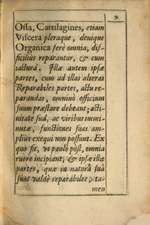 9
Ossa, Cartilagines, etiam
Viscera pleraque, denique
Organica fere omnia, dif-
ficilius reparantur, & cum
jactura. Ipsæ autem ipsæ
partes, cum ad illas alteras
Reparabiles partes, alias re-
parandas, omnino officium
suum præstare debeant, acti-
vitate sua, ac viribus immi-
nutæ, functiones suas am-
plius exequi non possunt. Ex
quo fit, ut paulò post, omnia
ruere incipiant, & ipsæ istæ
partes, quæ in natura sua
sunt valdè reparabiles, ta-
men